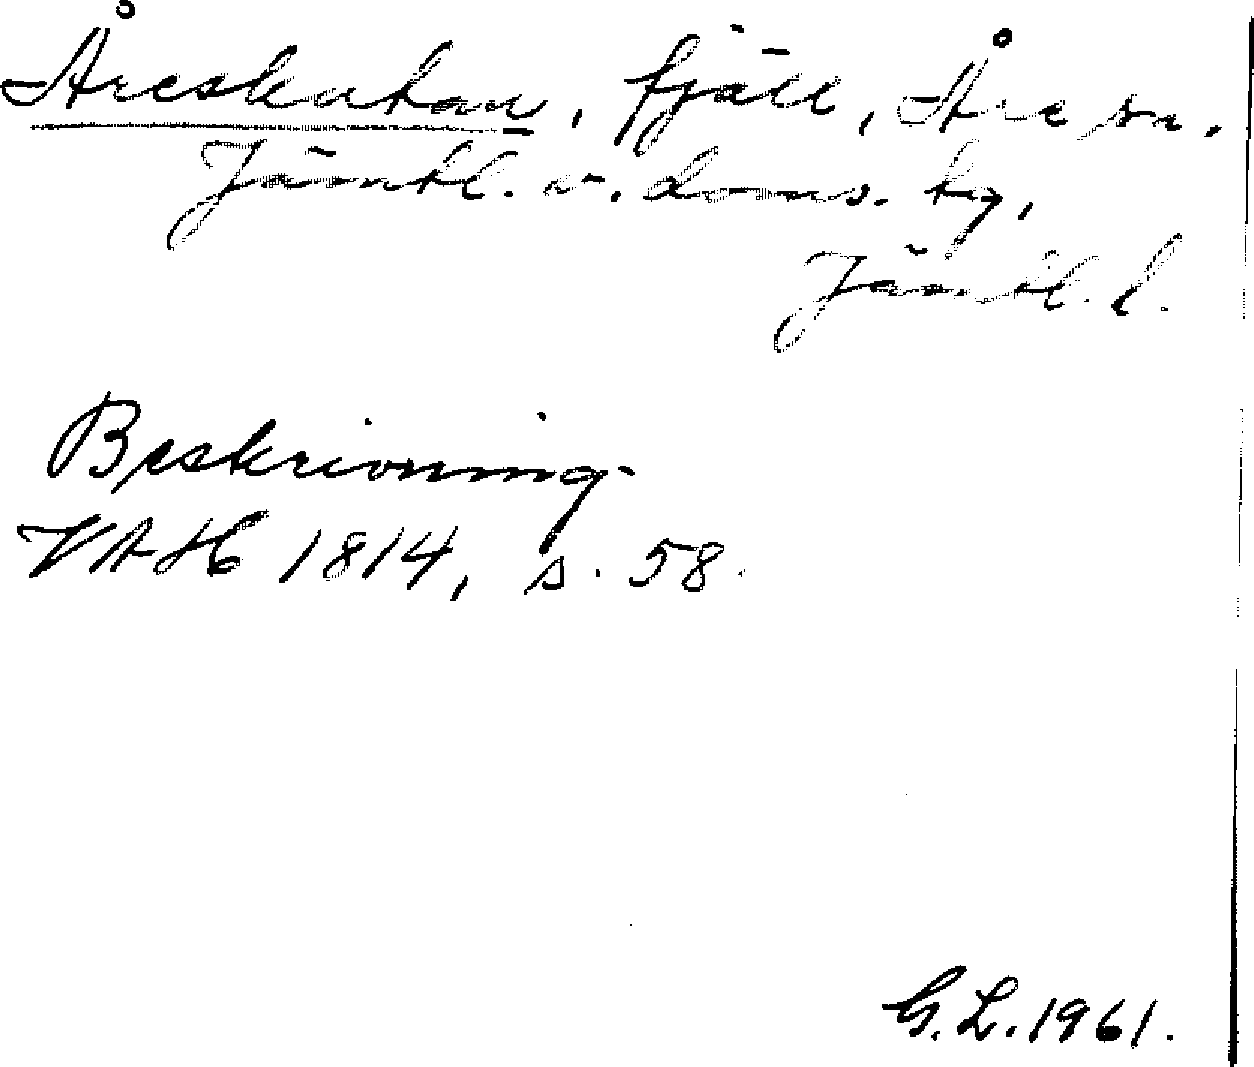 Åreskutan, fjäll, Åre sn.
Jämtl. v. doms. tg,
Jämtl. l.
Beskrivning
VAH 1814, s. 58.
G. L. 1961.